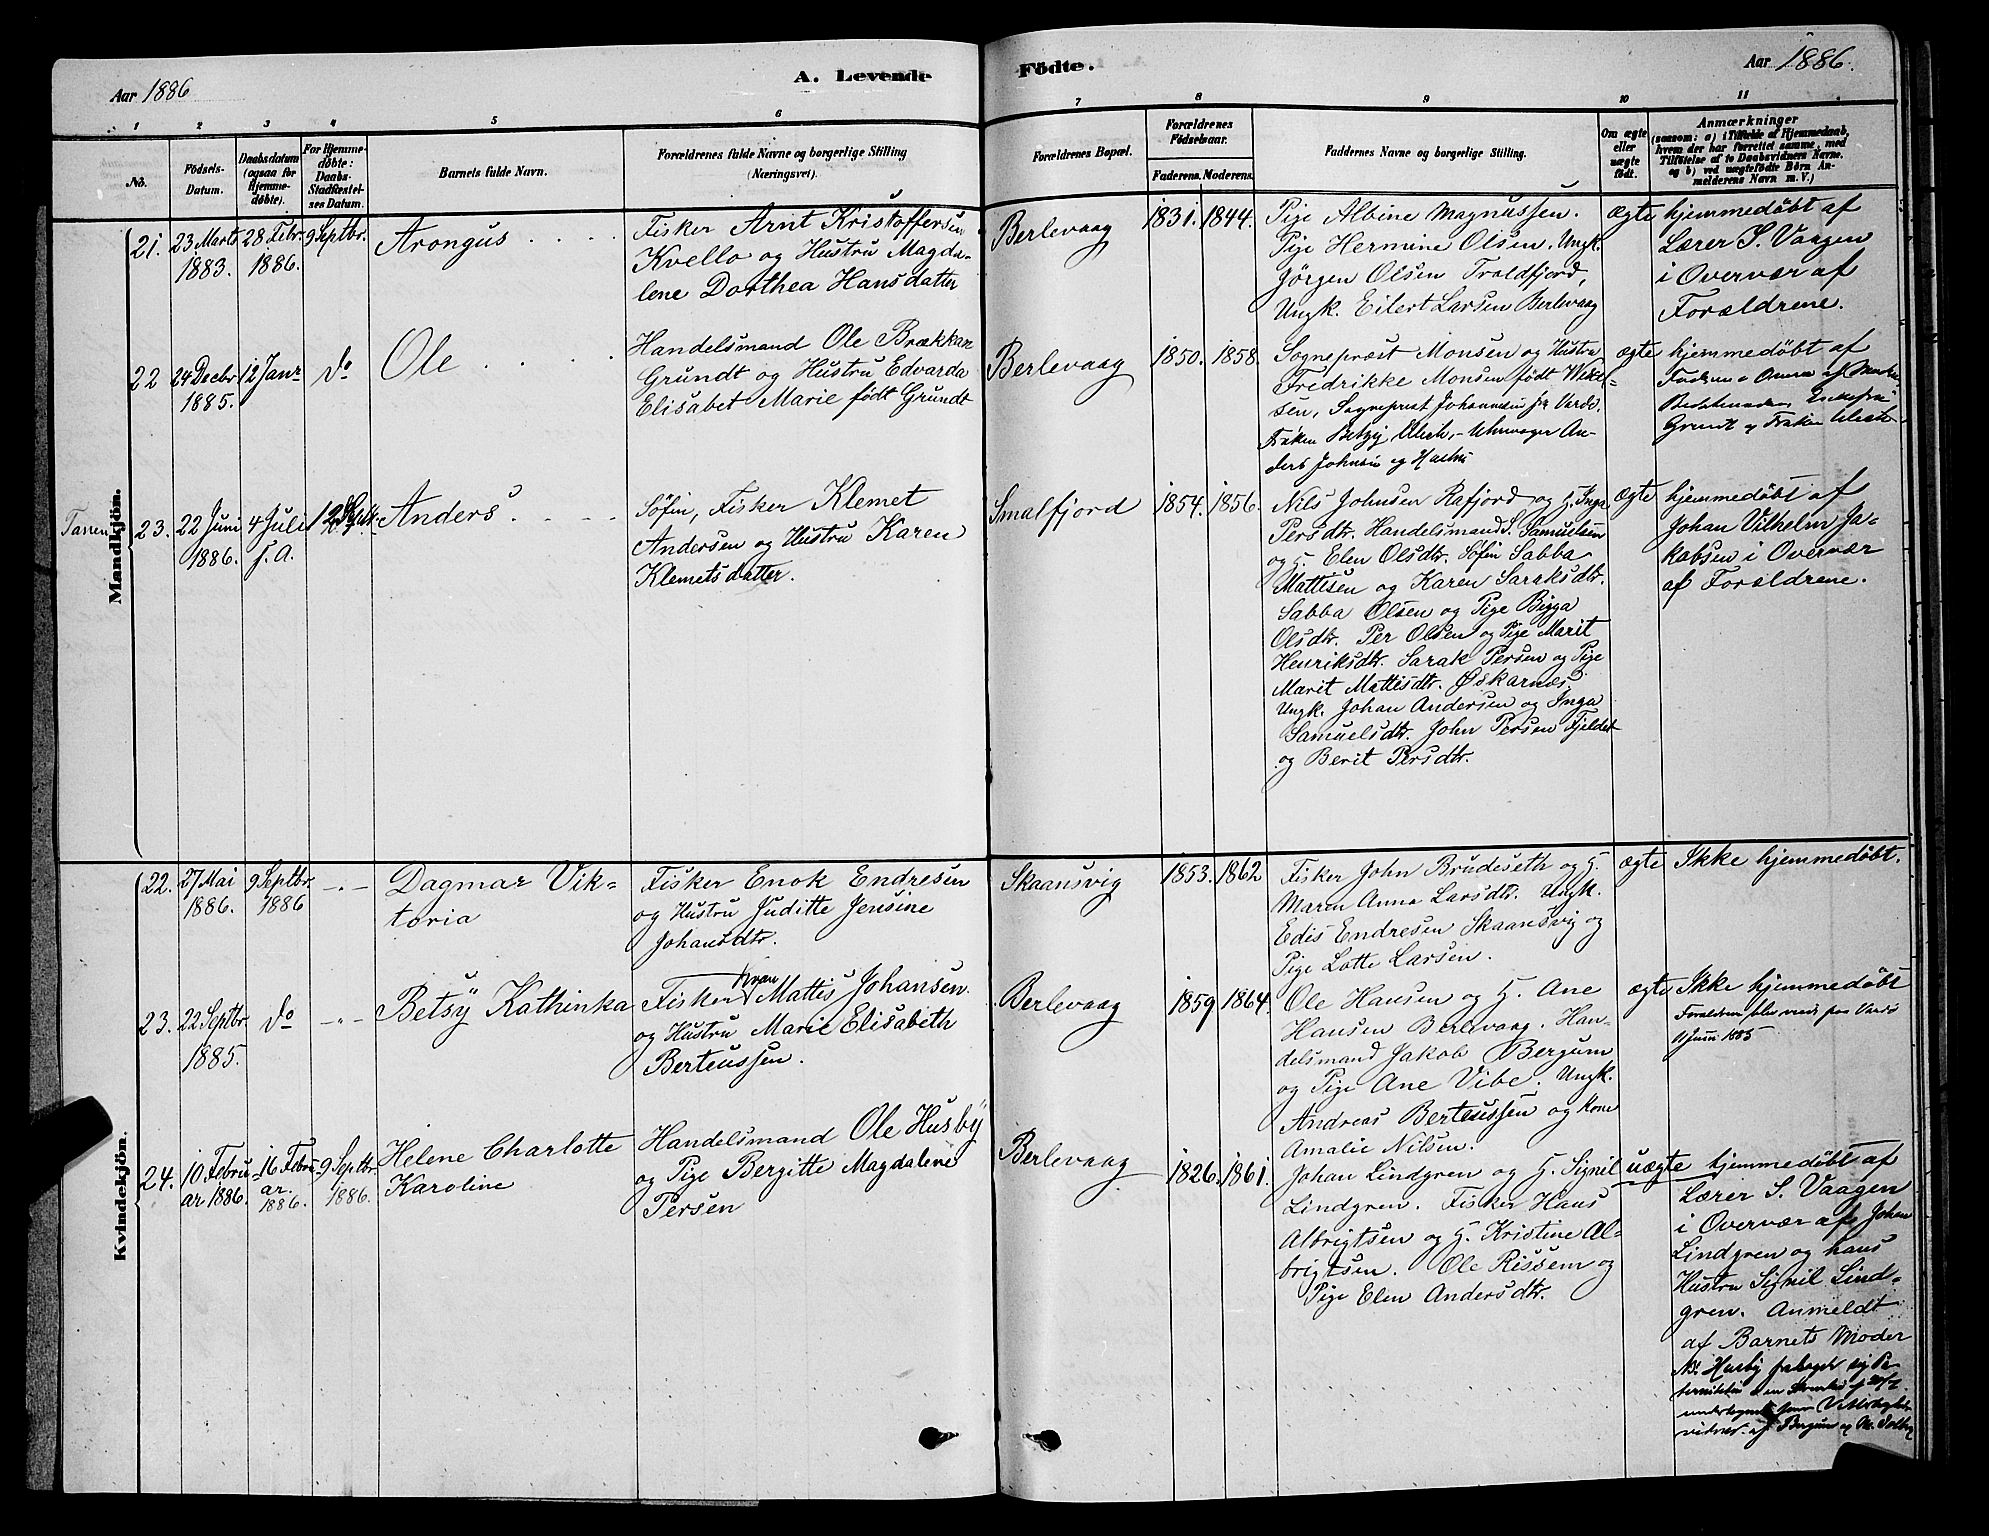 Aar 1886
A. Levende
Födte.
Aar 1886.
1 2 3 4 5 6 7 8 9 10 11
No.
Födsels-
Datum.
Daabsdatum
(ogsaa for
Hjemme-
döbte).
For Hjemme-
döbte:
Daabs-
Stadfæstel-
ses Datum.
Barnets fulde Navn.
Forældrenes fulde Navne og borgerlige Stilling
(Næringsvei).
Forældrenes Bopæl.
Forældrenes
Födselsaar.
Faderens. Moderens.
Faddernes Navne og borgerlige Stilling.
Om ægte
eller
uægte
födt.
Anmærkninger
(saasom: a) i Tilfælde af Hjemmedaab,
hvem der har forrettet samme, med
Tilföielse af to Daabsvidners Navne,
og b) ved uægtefödte Börn An-
melderens Navn m. V.)
Mandkjön.
21. 23 Marts
1883.
28. Febr.
1886.
9 Septbr.
Arongus
Fisker Arnt Kristoffersen
Kvello og Hustru Magda-
lene Dorthea Hansdatter
Berlevaag
1831. 1844.
Pige Albine Magnussen.
Pige Hermine Olsen. Ungk.
Jørgen Olsen Troldfjord,
Ungk. Eilert Larsen Berlevaag
ægte
hjemmedøbt af
Lærer S. Vaagen
i Overvær af
Forældrene.
22 24 Decbr
1885.
12 Janr
do
Ole
Handelsmand Ole Brækkan
Grundt og Hustru Edvarda
Elisabet Marie født Grundt
Berlevaag
1850. 1858
Sognepræst Monsen og Hustru
Fredrikke Monsen født Mikel-
sen, Sogneprest Johannsen fra Vardø.
Frøken Betzy
An-
ders Johnsen og Hustru
ægte
hjemmedøbt af
Grundt og Frøken
Tanen
23. 22 Juni
1886.
4 Juli
s. A.
12 Sept.
Anders
Søfin, Fisker Klemet
Andersen og Hustru Karen
Klemetsdatter.
Smalfjord
1854. 1856.
Nils Johnsen Rafjord og H. Inga
Persdtr. Handelsmand S. Samuelsen
og H. Elen Olsdtr. Søfin Sabba
Mattisen og Karen Saraksdtr.
Sabba Olsen og Pige Bigga
Olsdtr. Per Olsen og Pige Marit
Henriksdtr. Sarak Persen og Pige
Marit Mattisdtr. Øskarnæs
Ungk. Johan Andersen og Inga
Samuelsdtr. John Persen Fjeldet
og Berit Persdtr.
ægte
hjemmedøbt af
Johan Vilhelm Ja-
kobsen i Overvær
af Forældrene.
Kvindekjön.
22. 27 Mai
1886.
9 Septbr.
1886
-"-
Dagmar Vik-
toria
Fisker Enok Endresen
og Hustru Juditte Jensine
Johansdtr.
Skaansvig
1853. 1862
Fisker John Brudeseth og H.
Maren Anna Larsdtr. Ungk.
Edis Endresen Skaansvig og
Pige Lotte Larsen.
ægte
Ikke hjemmedøbt.
23. 22 Septbr.
1885.
do
-"-
Betsy Kathinka
Fisker Kvæn Mattis Johansen
og Hustru Marie Elisabeth
Berteussen.
Berlevaag
1859 1864.
Ole Hansen og H. Ane
Hansen Berlevaag. Han-
delsmand Jakob Bergum
og Pige Ane Vibe. Ungk.
Andreas Berteussen og Kone
Amalie Nilsen.
ægte
Ikke hjemmedøbt
Forældrene blev viede paa Vardø
11 Juni 1885
24. 10 Febru-
ar 1886.
16 Febru-
ar.
1886.
9 Septbr.
1886.
Helene Charlotte
Karoline
Handelsmand Ole Husby
og Pige Bergitte Magdalene
Persen
Berlevaag
1826. 1861.
Johan Lindgren og H. Signil
Lindgren. Fisker Hans
Albrigtsen og H. Kristine Al-
brigtsen. Ole Rissem og
Pige Elen Andersdtr.
uægte
hjemmedøbt af
Lærer S. Vaagen
i Overvær af Johan
Lindgren og hans
Hustru Signil Lind-
gren. Anmeldt
af Barnets Moder
Husby
af Bergum og